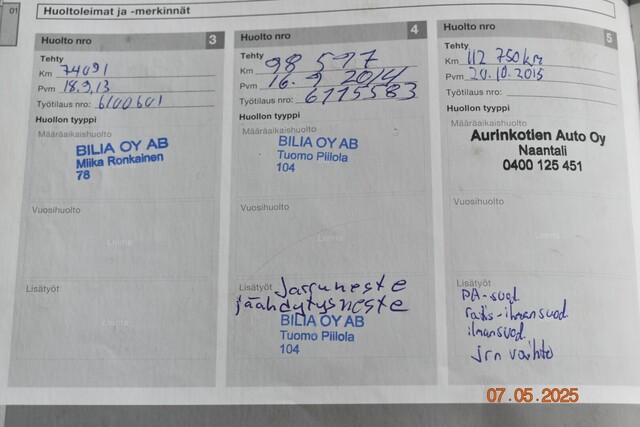 01
Huoltoleimat ja -merkinnät
Huolto nro 3
Tehty
Km 74091
Pvm 18.9,13
Työtilaus nro: 6100601
Huollon tyyppi
Määräaikaishuolto
BILIA OY AB
Miika Ronkainen
78
Vuosihuolto
Leima
Lisätyöt
Leima
Huolto nro 4
Tehty
Km 98 597
Pvm 16.9 2014
Työtilaus nro: 6115583
Huollon tyyppi
Määräaikaishuolto
BILIA OY AB
Tuomo Piilola
104
Vuosihuolto
Leima
Lisätyöt Jarruneste
jäähdytysneste
BILIA OY AB
Tuomo Piilola
104
Huolto nro 5
Tehty
Km 112 750 km
Pvm 20.10.2015
Työtilaus nro:
Huollon tyyppi
Määräaikaishuolto
Aurinkotien Auto Oy
Naantali
0400 125 451
Vuosihuolto
Leima
Lisätyöt
PA-suod.
raitis-ilmansuod.
ilmansuod.
jrn vaihto
07.05.2025